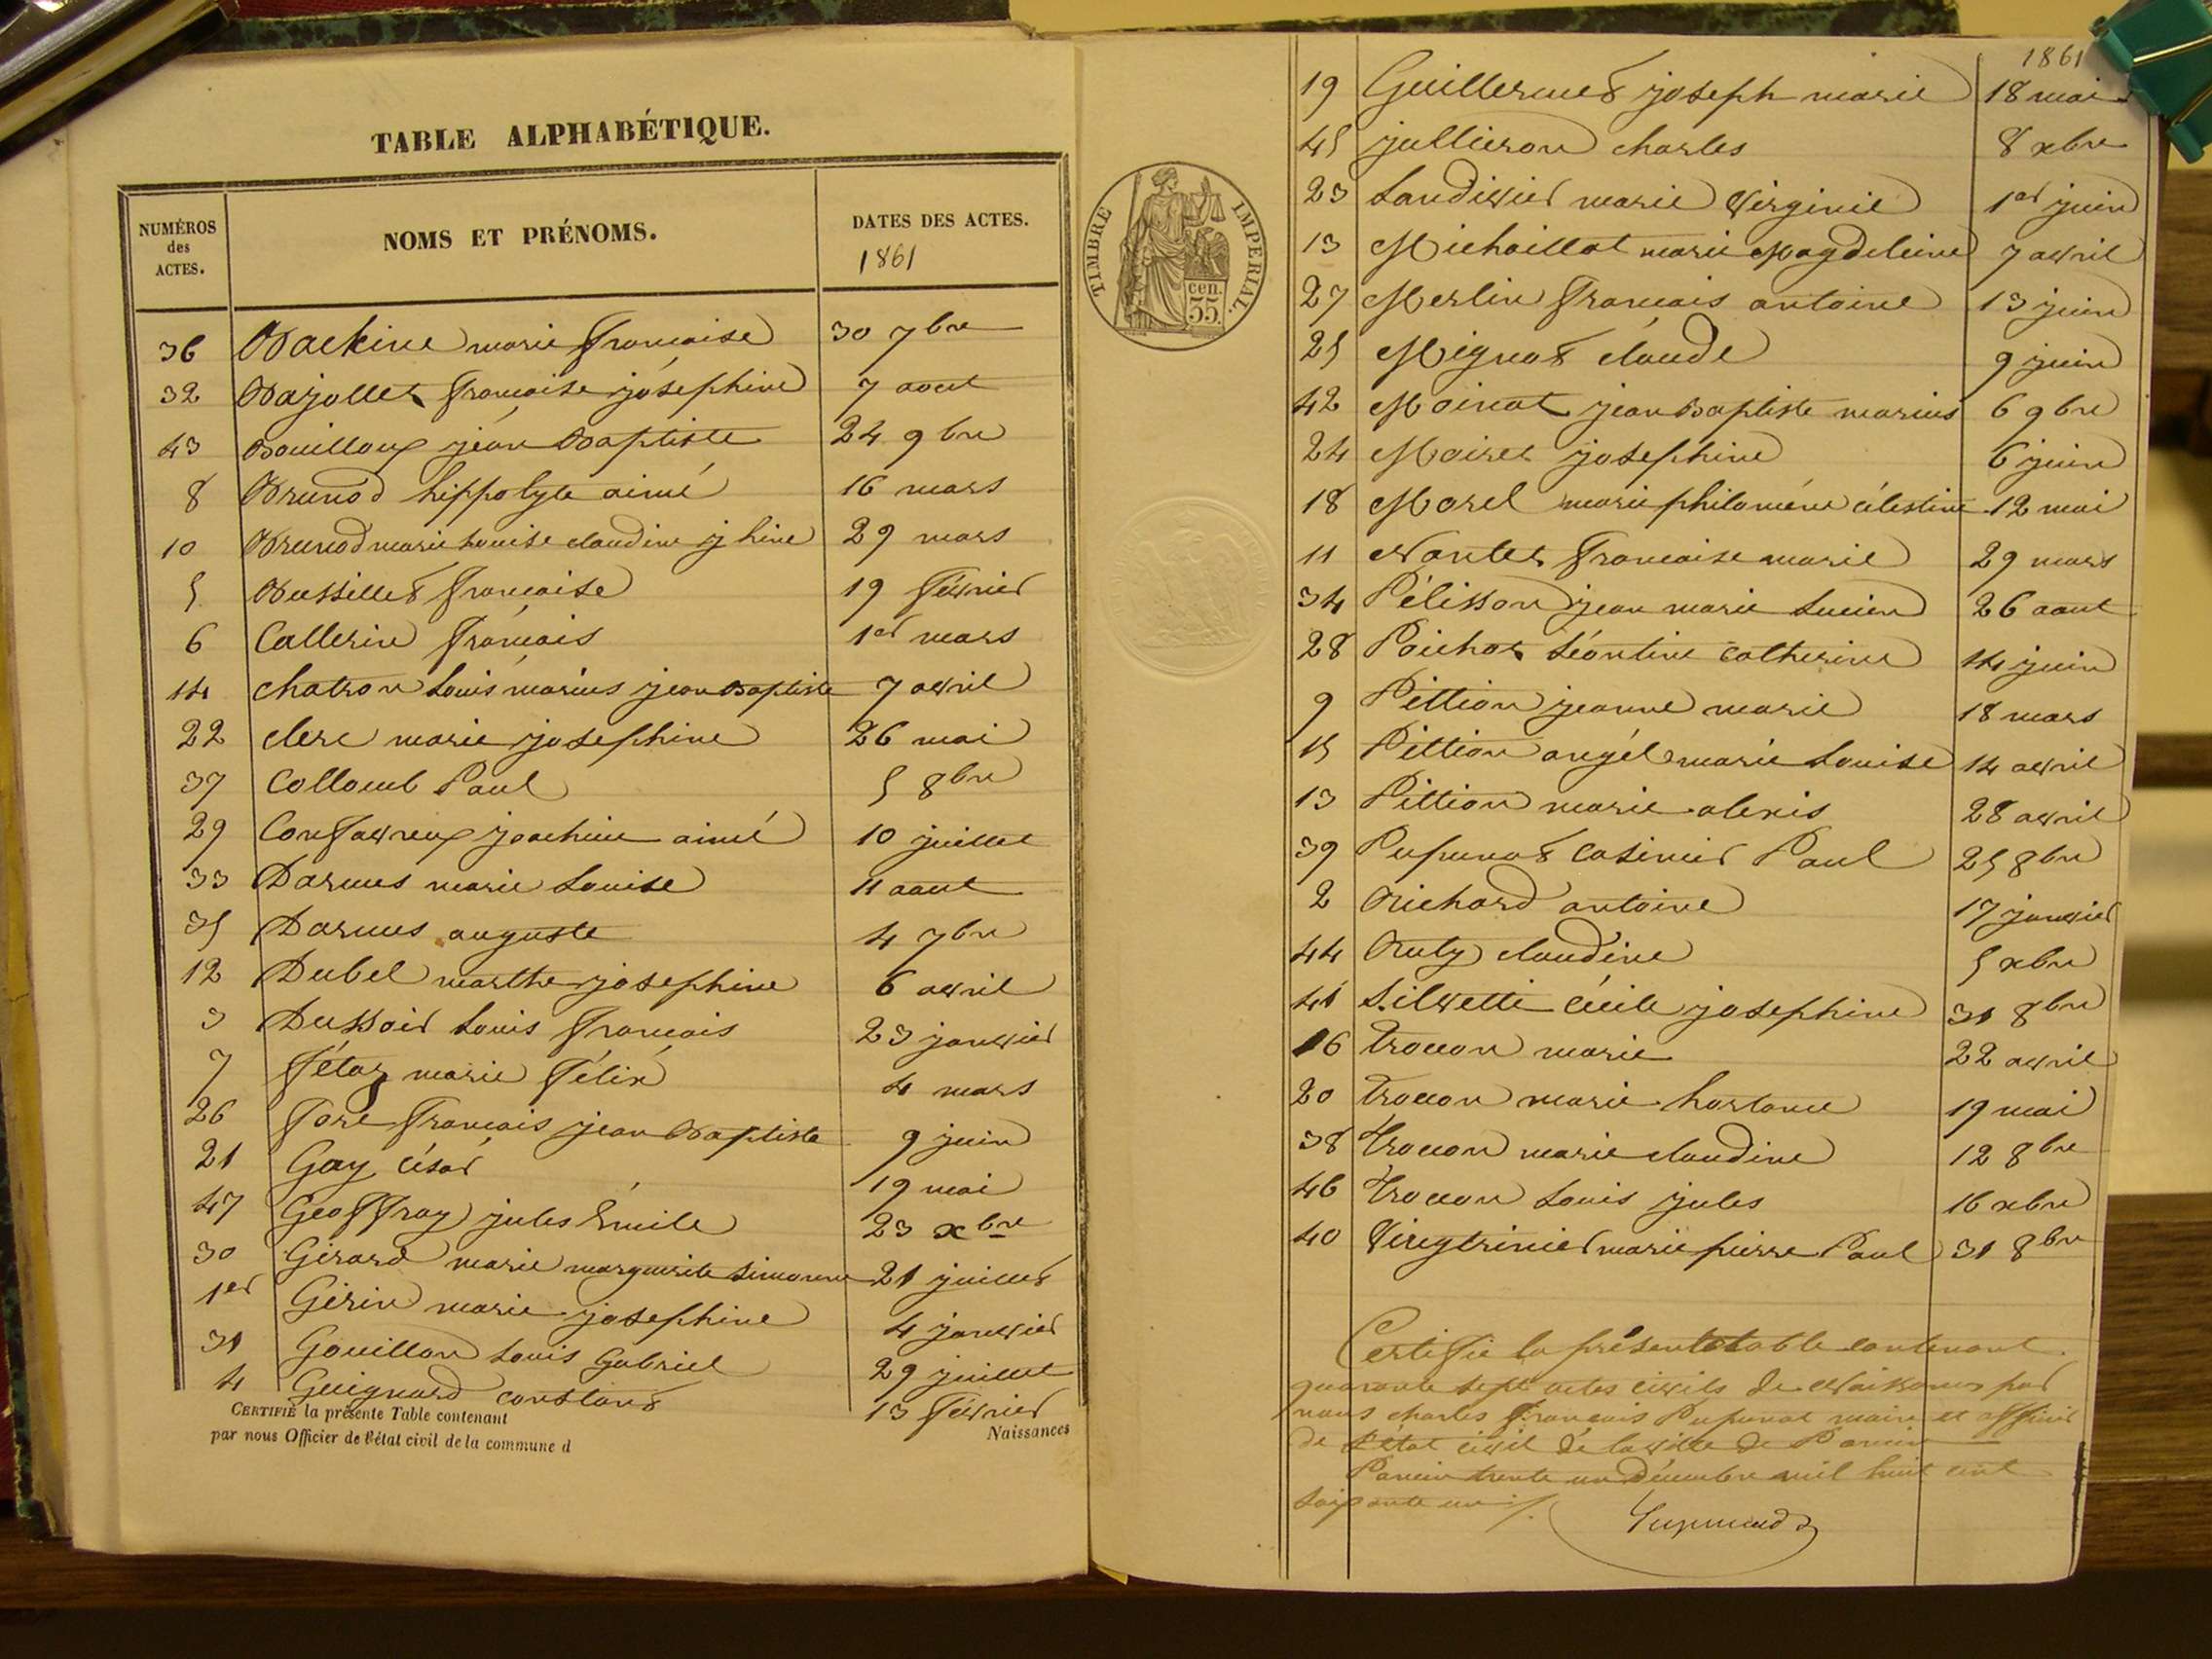 TABLE ALPHABÉTIQUE.
NUMÉROS des ACTES. NOMS ET PRÉNOMS. DATES DES ACTES.
1861
36 Backine marie françoise 30 7bre
32 Bajollet françoise joséphine 7 aout
43 Bouilloux jean Baptiste 24 9bre
8 Brunod hippolyte aimé 16 mars
10 Brunod marie Louise claudine jhine 29 mars
5 Bussillet françoise 19 février
6 Callerin françois 1er mars
14 chatron Louis marius jean Baptiste 7 avril
22 clerc marie josephine 26 mai
37 Collomb Paul 5 8bre
29 Confavreux joachim aimé 10 juillet
33 Darmes marie Louise 11 aout
35 Darmes auguste 4 7bre
12 Dubel marthe josephine 6 avril
3 Dussoir Louis françois 23 janvier
7 fétaz marie félix 4 mars
26 fore françois jean Baptiste 9 juin
21 Gay César 19 mai
47 Geoffray jules Émile 23 xbre
30 Girard marie marguerite Simonne 21 juillet
1er Gérin marie josephine 4 janvier
31 Gouillon Louis Gabriel 29 juillet
4 Guignard constant 13 février
CERTIFIÉ la présente Table contenant Naissances
par nous Officier de l'état civil de la commune d
1861
TIMBRE IMPERIAL.
cen. 55.
19 Guillermet joseph marie 18 mai
45 jullieron charles 8 xbre
23 Landivier marie Virginie 1er juin
13 Michaillat marie Magdeleine 7 avril
27 Merlin françois antoine 13 juin
25 Mignot claude 9 juin
42 Moinat jean Baptiste marius 6 9bre
24 Moiret josephine 6 juin
18 Morel marie philomène célestine 12 mai
11 Nantet françoise marie 29 mars
34 Pélisson jean marie Lucien 26 aout
28 Poichot Léontine catherine 14 juin
9 Pittion jeanne marie 18 mars
15 Pittion angél marie Louise 14 avril
13 Pittion marie alexis 28 avril
39 Pupunat Casimir Paul 25 8bre
2 Richard antoine 17 janvier
44 Ruty claudine 5 xbre
41 Silvetti Cécile josephine 31 8bre
16 Trocon marie 22 avril
20 Trocon marie hortance 19 mai
38 Trocon marie claudine 12 8bre
46 Trocon Louis jules 16 xbre
40 Vingtrinier marie pierre Paul 31 8bre
Certifie la présente table contenant
quarante sept actes civils de Naissances par
nous charles François Pupunat maire et officier
de l'état civil de la ville de Poncin
Poncin trente un Décembre mil huit cent
soixante un